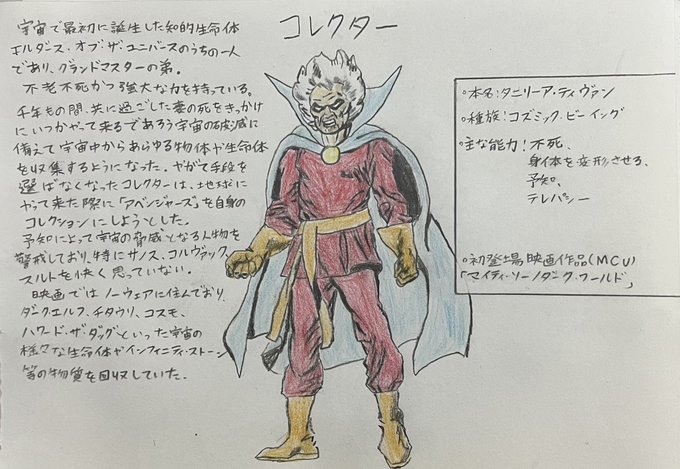 コレクター
宇宙で最初に誕生した知的生命体
エルダズ・オブ・ザ・ユニバースのうちの一人
であり、グランドマスターの弟。
不老不死かつ強大な力を持っている。
千年もの間、共に過ごした妻の死をきっかけ
にいつかやって来るであろう宇宙の破滅に
備えて宇宙中からあらゆる物体や生命体
を収集するようになった。やがて手段を
選ばなくなったコレクターは、地球に
やって来た際に「アベンジャーズ」を自身の
コレクションにしようとした。
予知によって宇宙の脅威となる人物を
警戒しており、特にサノス、コルヴァック、
スルトを快く思っていない。
映画ではノーウェアに住んでおり、
ダークエルフ、チタウリ、コスモ、
ハワード・ザ・ダックといった宇宙の
様々な生命体やインフィニティ・ストーン
等の物質を回収していた。
○本名:タニリーア・ティヴァン
○種族:コズミック・ビーイング
○主な能力:不死、
身体を変形させる、
予知、
テレパシー
○初登場映画作品(MCU)
「マイティ・ソー/ダーク・ワールド」